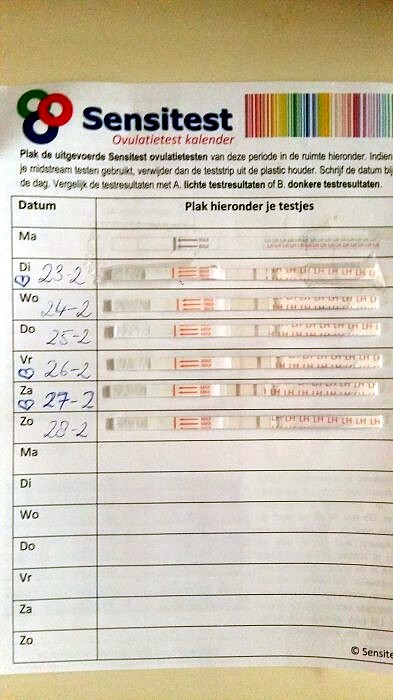 Sensitest
Ovulatietest kalender
Plak de uitgevoerde Sensitest ovulatietesten van deze periode in de ruimte hieronder. Indien
je midstream testen gebruikt, verwijder dan de teststrip uit de plastic houder. Schrijf de datum bij
de dag. Vergelijk de testresultaten met A. lichte testresultaten of B. donkere testresultaten.
Datum Plak hieronder je testjes
Ma
Di 23-2
Wo 24-2
Do 25-2
Vr 26-2
Za 27-2
Zo 28-2
LH LH LH LH LH
Ma
Di
Wo
Do
Vr
Za
Zo
© Sensite